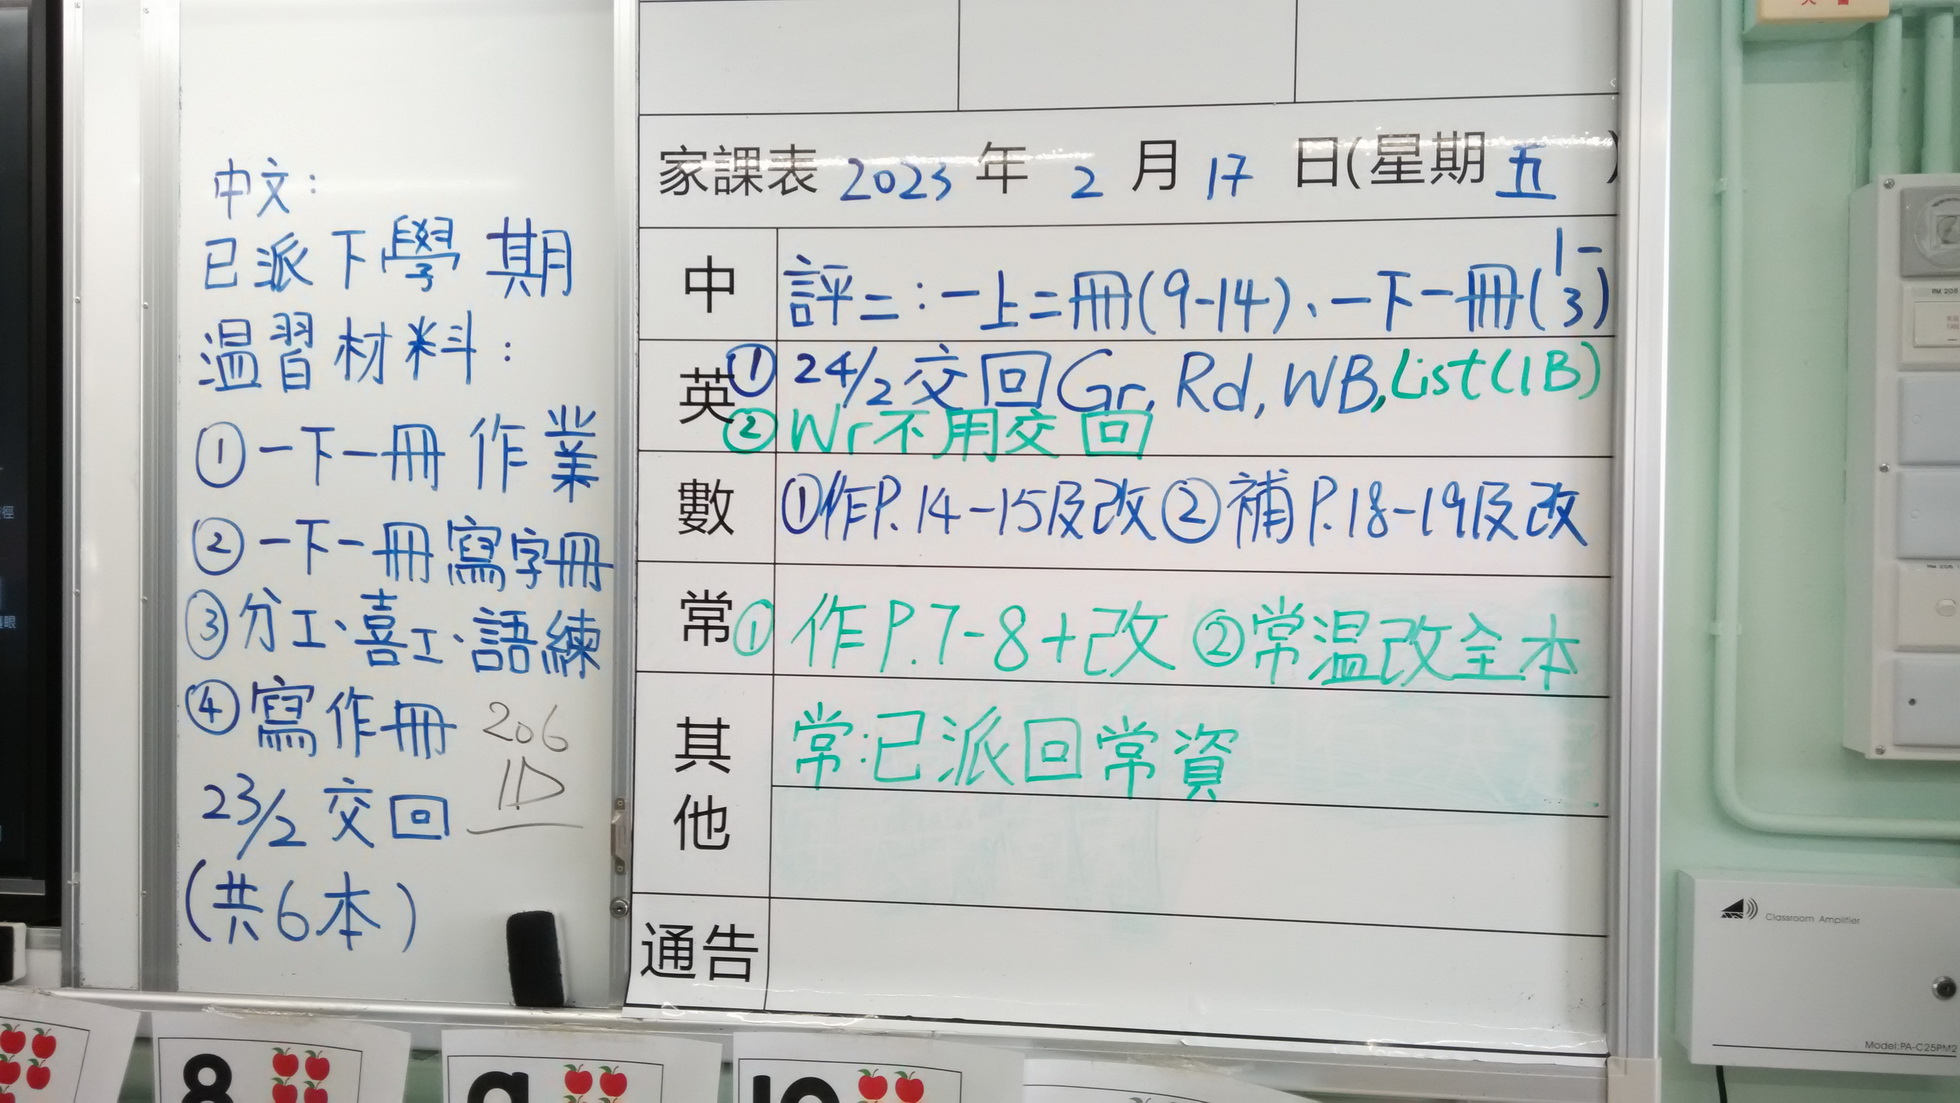 中文：
已派下學期
温習材料：
①一下一冊作業
②一下一冊寫字冊
③分工、喜工、語練
④寫作冊
23/2 交回
(共6本)
206
1D
家課表 2023 年 2 月 17 日(星期 五 )
中 評二：一上二冊(9-14)、一下一冊(1-3)
英 ① 24/2 交回 Gr, Rd, WB, List(1B)
② Wr 不用交回
數 ①作P.14-15及改 ②補P.18-19及改
常 ① 作P.7-8+改 ②常温改全本
其他 常：已派回常資
通告
Classroom Amplifier
Model:PA-C25PM2
8
9
10